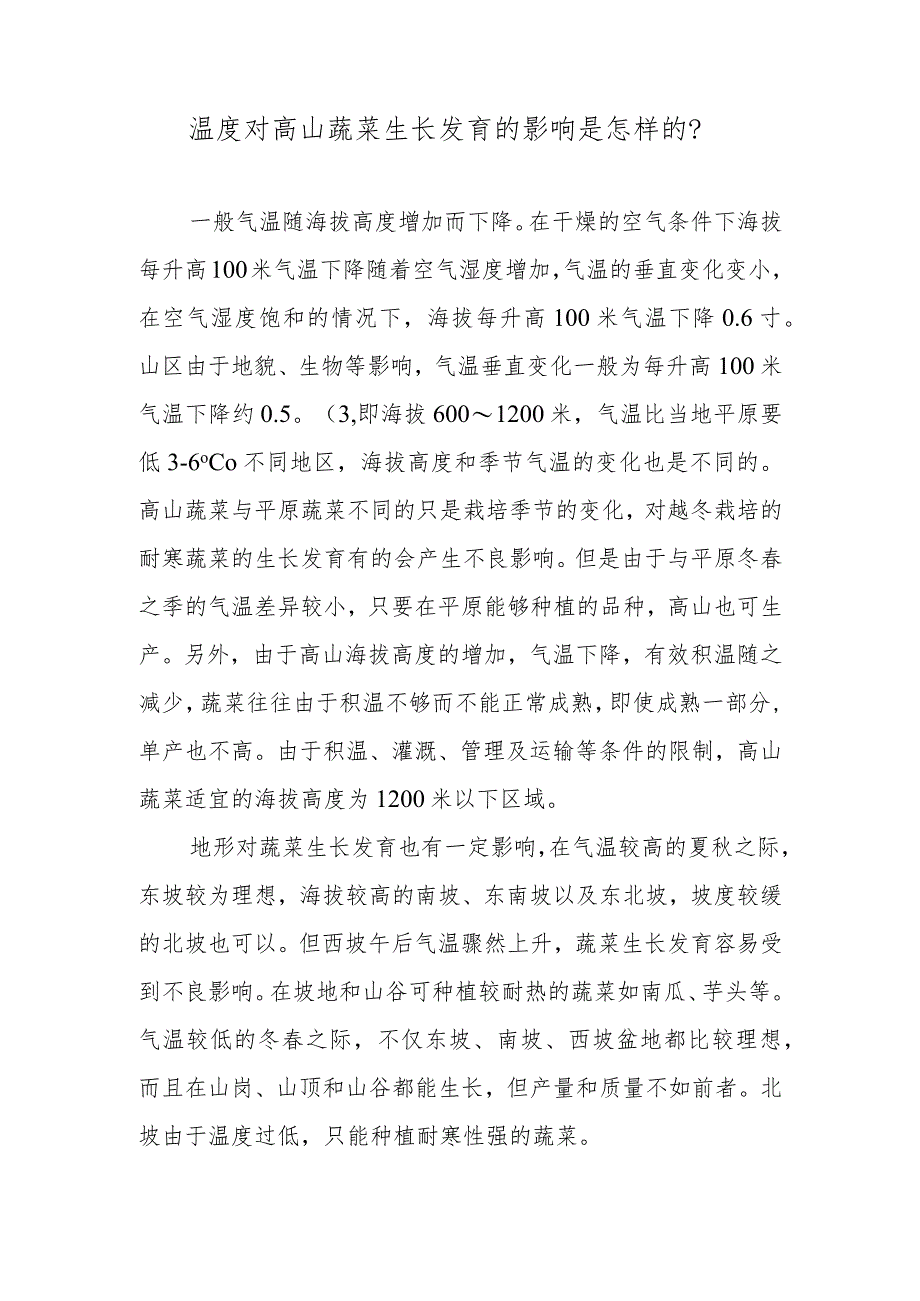 温度对高山蔬菜生长发育的影响是怎样的?
一般气温随海拔高度增加而下降。在干燥的空气条件下海拔
每升高100米气温下降随着空气湿度增加,气温的垂直变化变小,
在空气湿度饱和的情况下，海拔每升高100米气温下降0.6寸。
山区由于地貌、生物等影响，气温垂直变化一般为每升高100米
气温下降约0.5。（3,即海拔600～1200米，气温比当地平原要
低3-6ºCo不同地区，海拔高度和季节气温的变化也是不同的。
高山蔬菜与平原蔬菜不同的只是栽培季节的变化，对越冬栽培的
耐寒蔬菜的生长发育有的会产生不良影响。但是由于与平原冬春
之季的气温差异较小，只要在平原能够种植的品种，高山也可生
产。另外，由于高山海拔高度的增加，气温下降，有效积温随之
减少，蔬菜往往由于积温不够而不能正常成熟，即使成熟一部分，
单产也不高。由于积温、灌溉、管理及运输等条件的限制，高山
蔬菜适宜的海拔高度为1200米以下区域。
地形对蔬菜生长发育也有一定影响,在气温较高的夏秋之际，
东坡较为理想，海拔较高的南坡、东南坡以及东北坡，坡度较缓
的北坡也可以。但西坡午后气温骤然上升，蔬菜生长发育容易受
到不良影响。在坡地和山谷可种植较耐热的蔬菜如南瓜、芋头等。
气温较低的冬春之际，不仅东坡、南坡、西坡盆地都比较理想，
而且在山岗、山顶和山谷都能生长，但产量和质量不如前者。北
坡由于温度过低，只能种植耐寒性强的蔬菜。